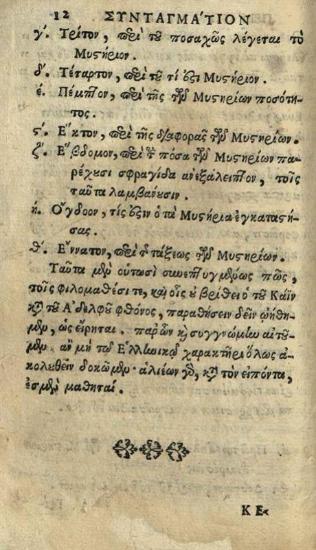 12 ΣΥΝΤΑΓΜΑΤΙΟΝ
γ΄. Τρίτον, περὶ τοῦ ποσαχῶς λέγεται τὸ
Μυστήριον.
δ΄. Τέταρτον, περὶ τοῦ τί ἐστι Μυστήριον.
έ. Πέμπτον, περὶ τῆς τῶν Μυστηρίων ποσότη-
τος.
ϛ΄. Ἕκτον, περὶ τῆς διαφορᾶς τῶν Μυστηρίων.
ζ΄. Ἕβδομον, περὶ τοῦ πόσα τῶν Μυστηρίων πα-
ρέχουσι σφραγίδα ἀνεξάλειπτον, τοῖς
ταῦτα λαμβάνουσιν.
ή. Ὄγδοον, τίς ἐστιν ὁ τὰ Μυστήρια ἐγκαταστή-
σας.
θ΄. Ἔννατον, περὶ τῆς τάξεως τῶν Μυστηρίων.
Ταῦτα μὲν οὑτωσὶ συνεπτυγμένως πῶς,
τοῖς φιλομαθέσι τε, καὶ οἷς οὐ βρίθει ὁ τοῦ Κάϊν
κατὰ τοῦ Ἀδελφοῦ φθόνος, παραθήσειν δεῖν ᾠήθη-
μεν, ὡς εἴρηται. παρ' ὧν καὶ συγγνώμην αἰτοῦ-
μεν ἂν μὴ τῷ Ἑλληνικῷ χαρακτῆρι ὅλως ἀ-
κολουθεῖν δοκῶμεν· ἁλιέων γὰρ, κατὰ τὸν εἰπόντα,
ἐσμὲν μαθηταί.
ΚΕ